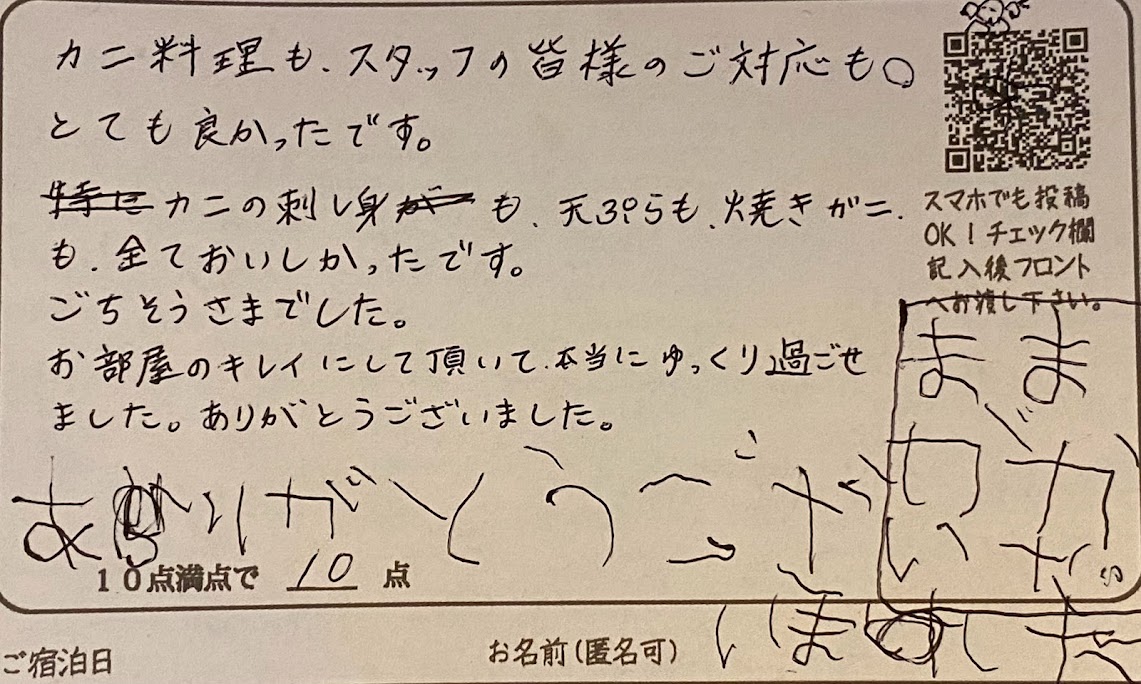 カニ料理も、スタッフの皆様のご対応も
とても良かったです。
カニの刺し身も、天ぷらも、焼きガニ
も、全ておいしかったです。
ごちそうさまでした。
お部屋のキレイにして頂いて、本当にゆっくり過ごせ
ました。ありがとうございました。
スマホでも投稿
OK！チェック欄
記入後フロント
へお渡し下さい。
ありがとうござ
いました
10点満点で 10 点
ご宿泊日
お名前（匿名可）